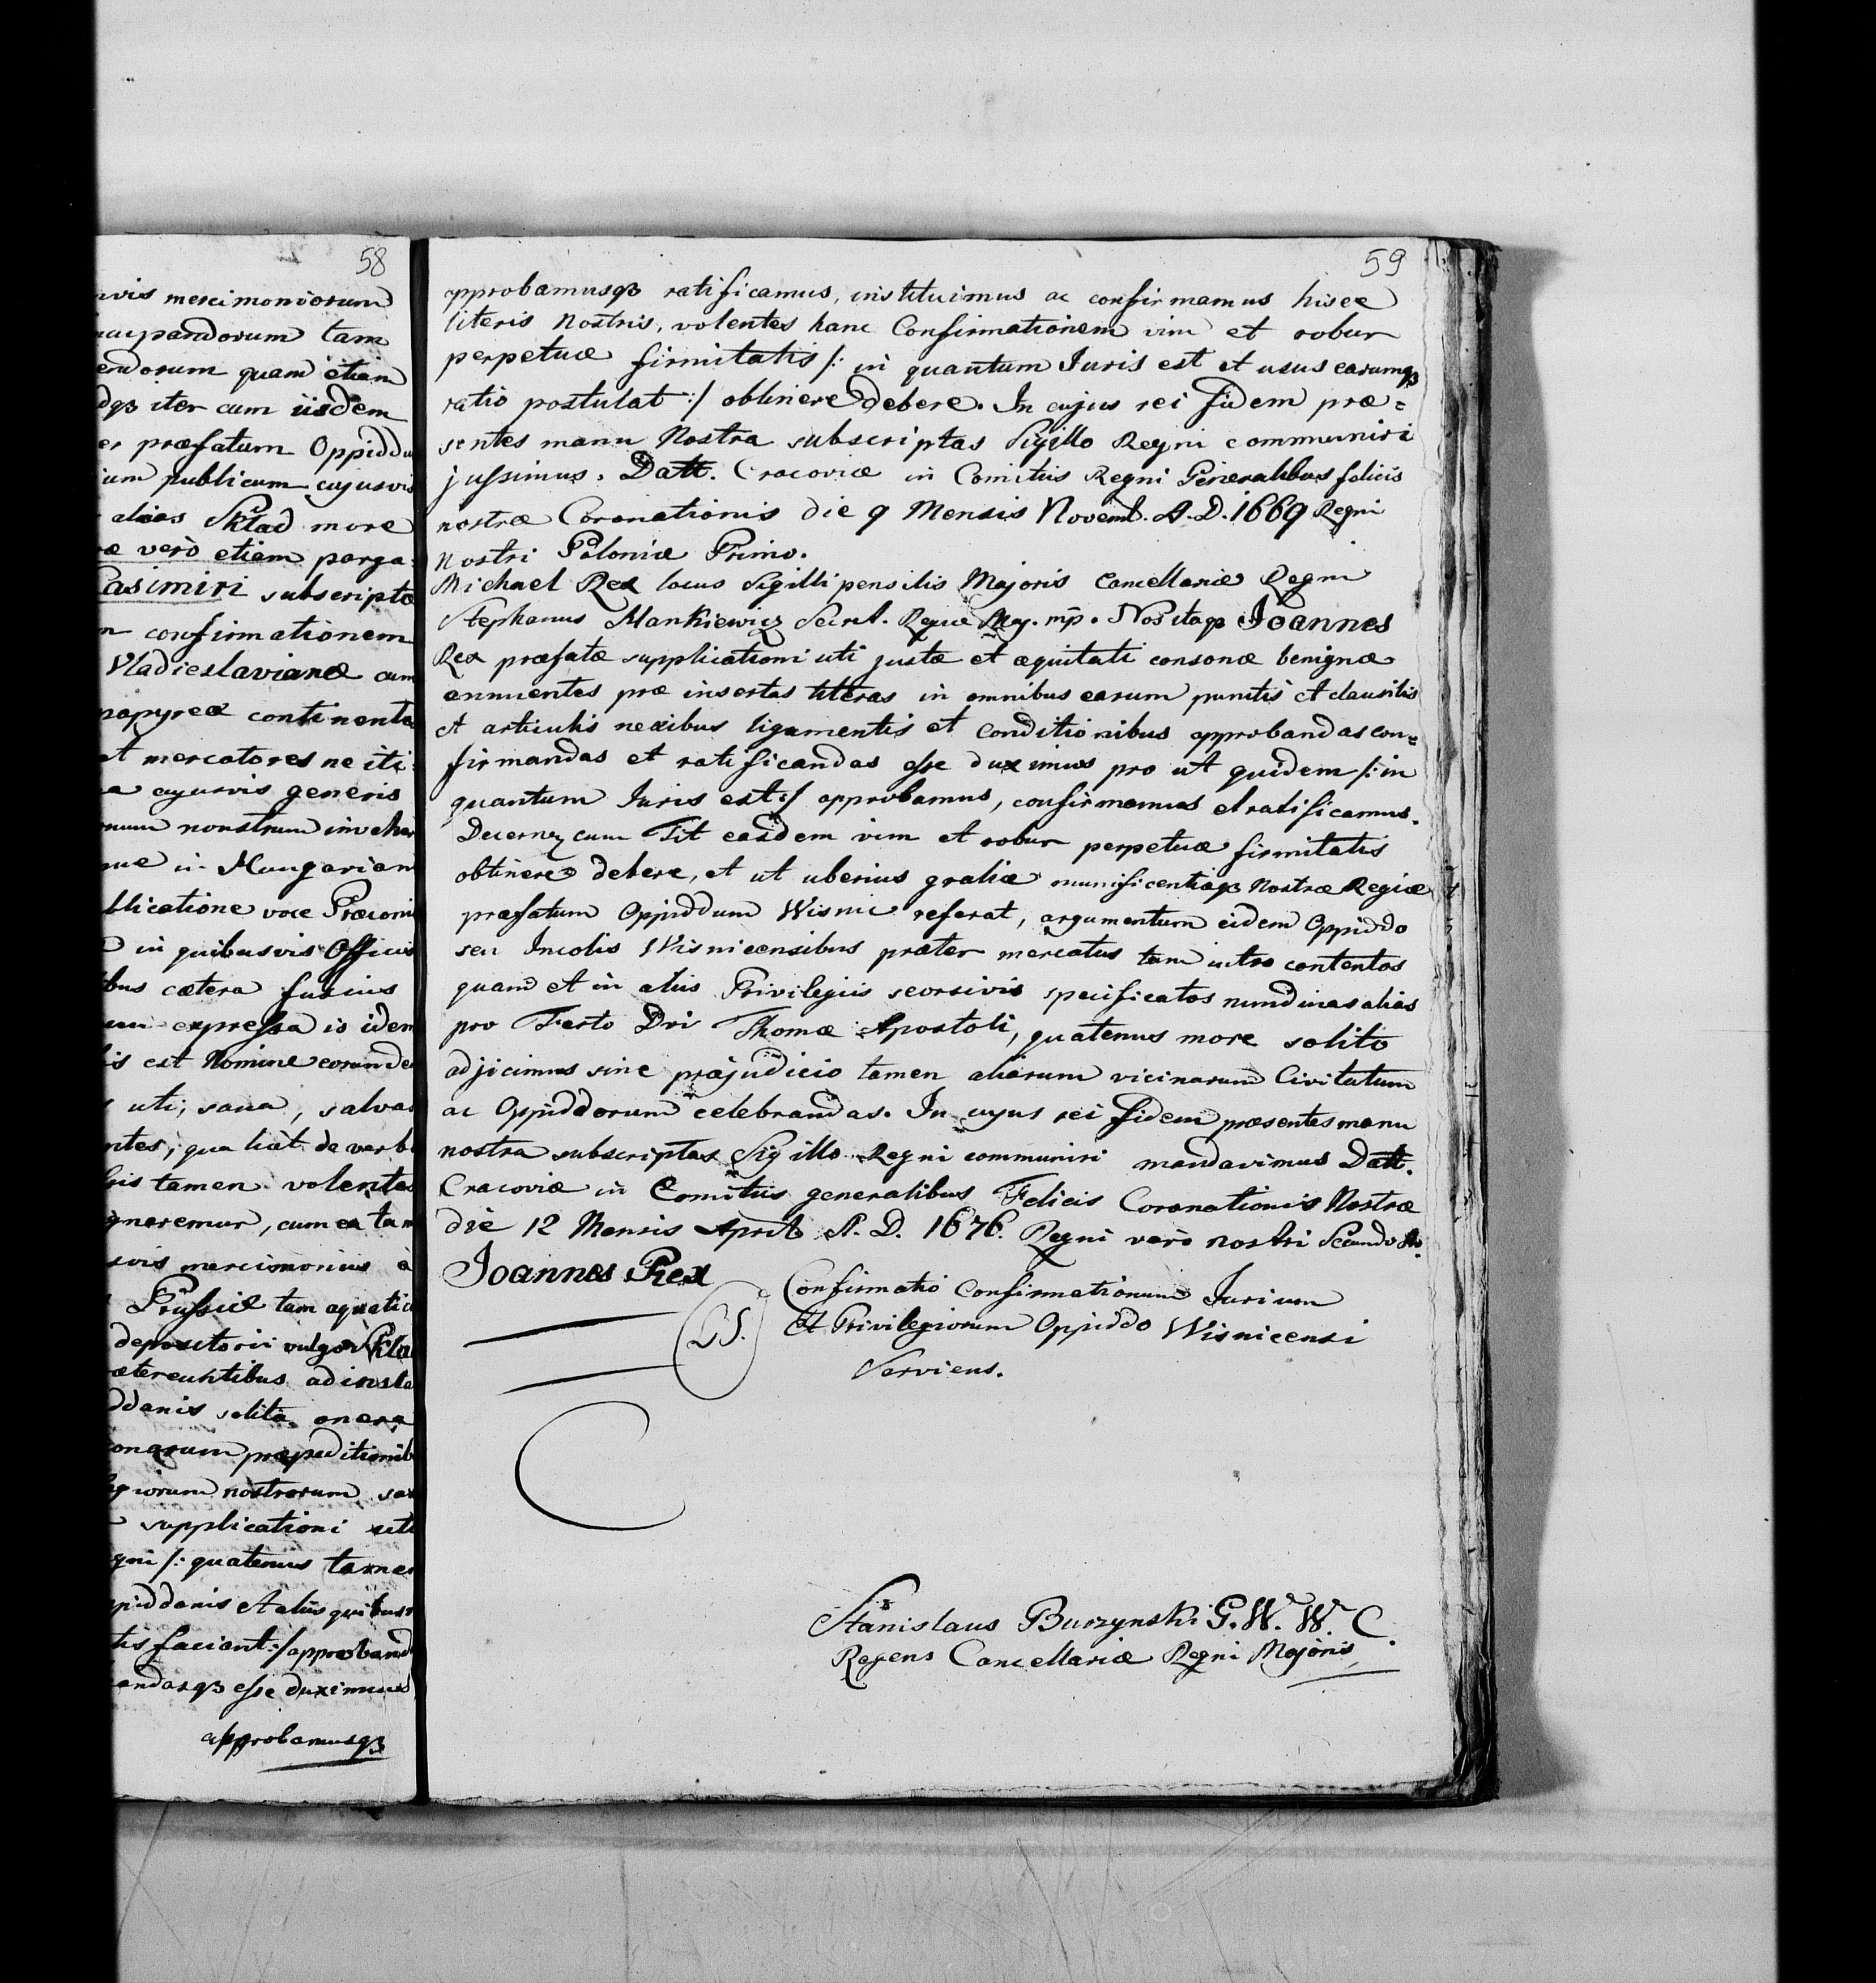 58
mercimoniorum
tam
quam etiam
iter cum iisdem
præfatum Oppidu
publicum cujusvis
alias Skład more
vero etiam perga=
Casimiri subscripto
confirmationem
Vladislavianæ cum
papyrea continente
mercatores ne iti=
cujusvis generis
nonstrum inveher
in Hungariam
voce Præconis
in quibusvis Officiis
cætera fusius
expressa is idem
est Nomine
uti, sana, salva
de verbo
tamen volentes
cum ea tam
mercimoniis à
Prussiæ tam aquatic
depositorii vulgo Skła
ad insta
solita onera
nostrorum
supplicationi uti
/: quatenus tamen
et aliis quibus
faciant :/ approband
esse duximus
approbamusqз
59
approbamusqз ratificamus, instituimus ac confirmamus hisce
literis Nostris, volentes hanc Confirmationem vim et robur
perpetuæ firmitatis /: in quantum Juris est et usus earumqз
ratio postulat :/ obtinere debere. In cujus rei fidem præ=
sentes manu Nostra subscriptas Sigillo Regni communiri
jussimus. Datt. Cracoviæ in Comitiis Regni Generalibus felicis
nostræ Coronationis die 9 Mensis Novemb. A. D. 1669 Regni
Nostri Poloniæ Primo.
Michael Rex locus Sigilli pensilis Majoris Cancellariæ Regni
Stephanus Hankiewicz Secret. Regiæ Maj. mp. Nos itaqз Joannes
Rex præfatæ supplicationi uti justæ et æquitati consonæ benignæ
annuentes præ insertas literas in omnibus earum punctis et clausulis
et articulis nexibus ligamentis et conditionibus approbandas con=
firmandas et ratificandas esse duximus pro ut quidem /: in
quantum Juris est :/ approbamus, confirmamus et ratificamus.
cum Tit easdem vim et robur perpetuæ firmitatis
obtinere debere, et ut uberius gratiæ munificentiæqз Nostræ Regiæ
præfatum Oppiddum Wisnic referat, argumentum eidem Oppiddo
seu Incolis Wisnicensibus præter mercatus tam intro contentos
quam et in aliis Privilegiis seorsivis specificatos nundinas alias
pro Festo Dvi Thomæ Apostoli, quatenus more solito
adjicimus sine præjudicio tamen aliarum vicinarum Civitatum
ac Oppiddorum celebrandas. In cujus rei fidem præsentes manu
nostra subscriptas Sigillo Regni communiri mandavimus Datt.
Cracoviæ in Comitiis generalibus Felicis Coronationis Nostræ
die 12 Mensis April A. D. 1676. Regni vero nostri Secundo
Joannes Rex
LS.
Confirmatio Confirmationum Jurium
et Privilegiorum Oppiddo Wisnicensi
Serviens.
Stanislaus Burzynski G. W. W. C.
Regens Cancellariæ Regni Majoris